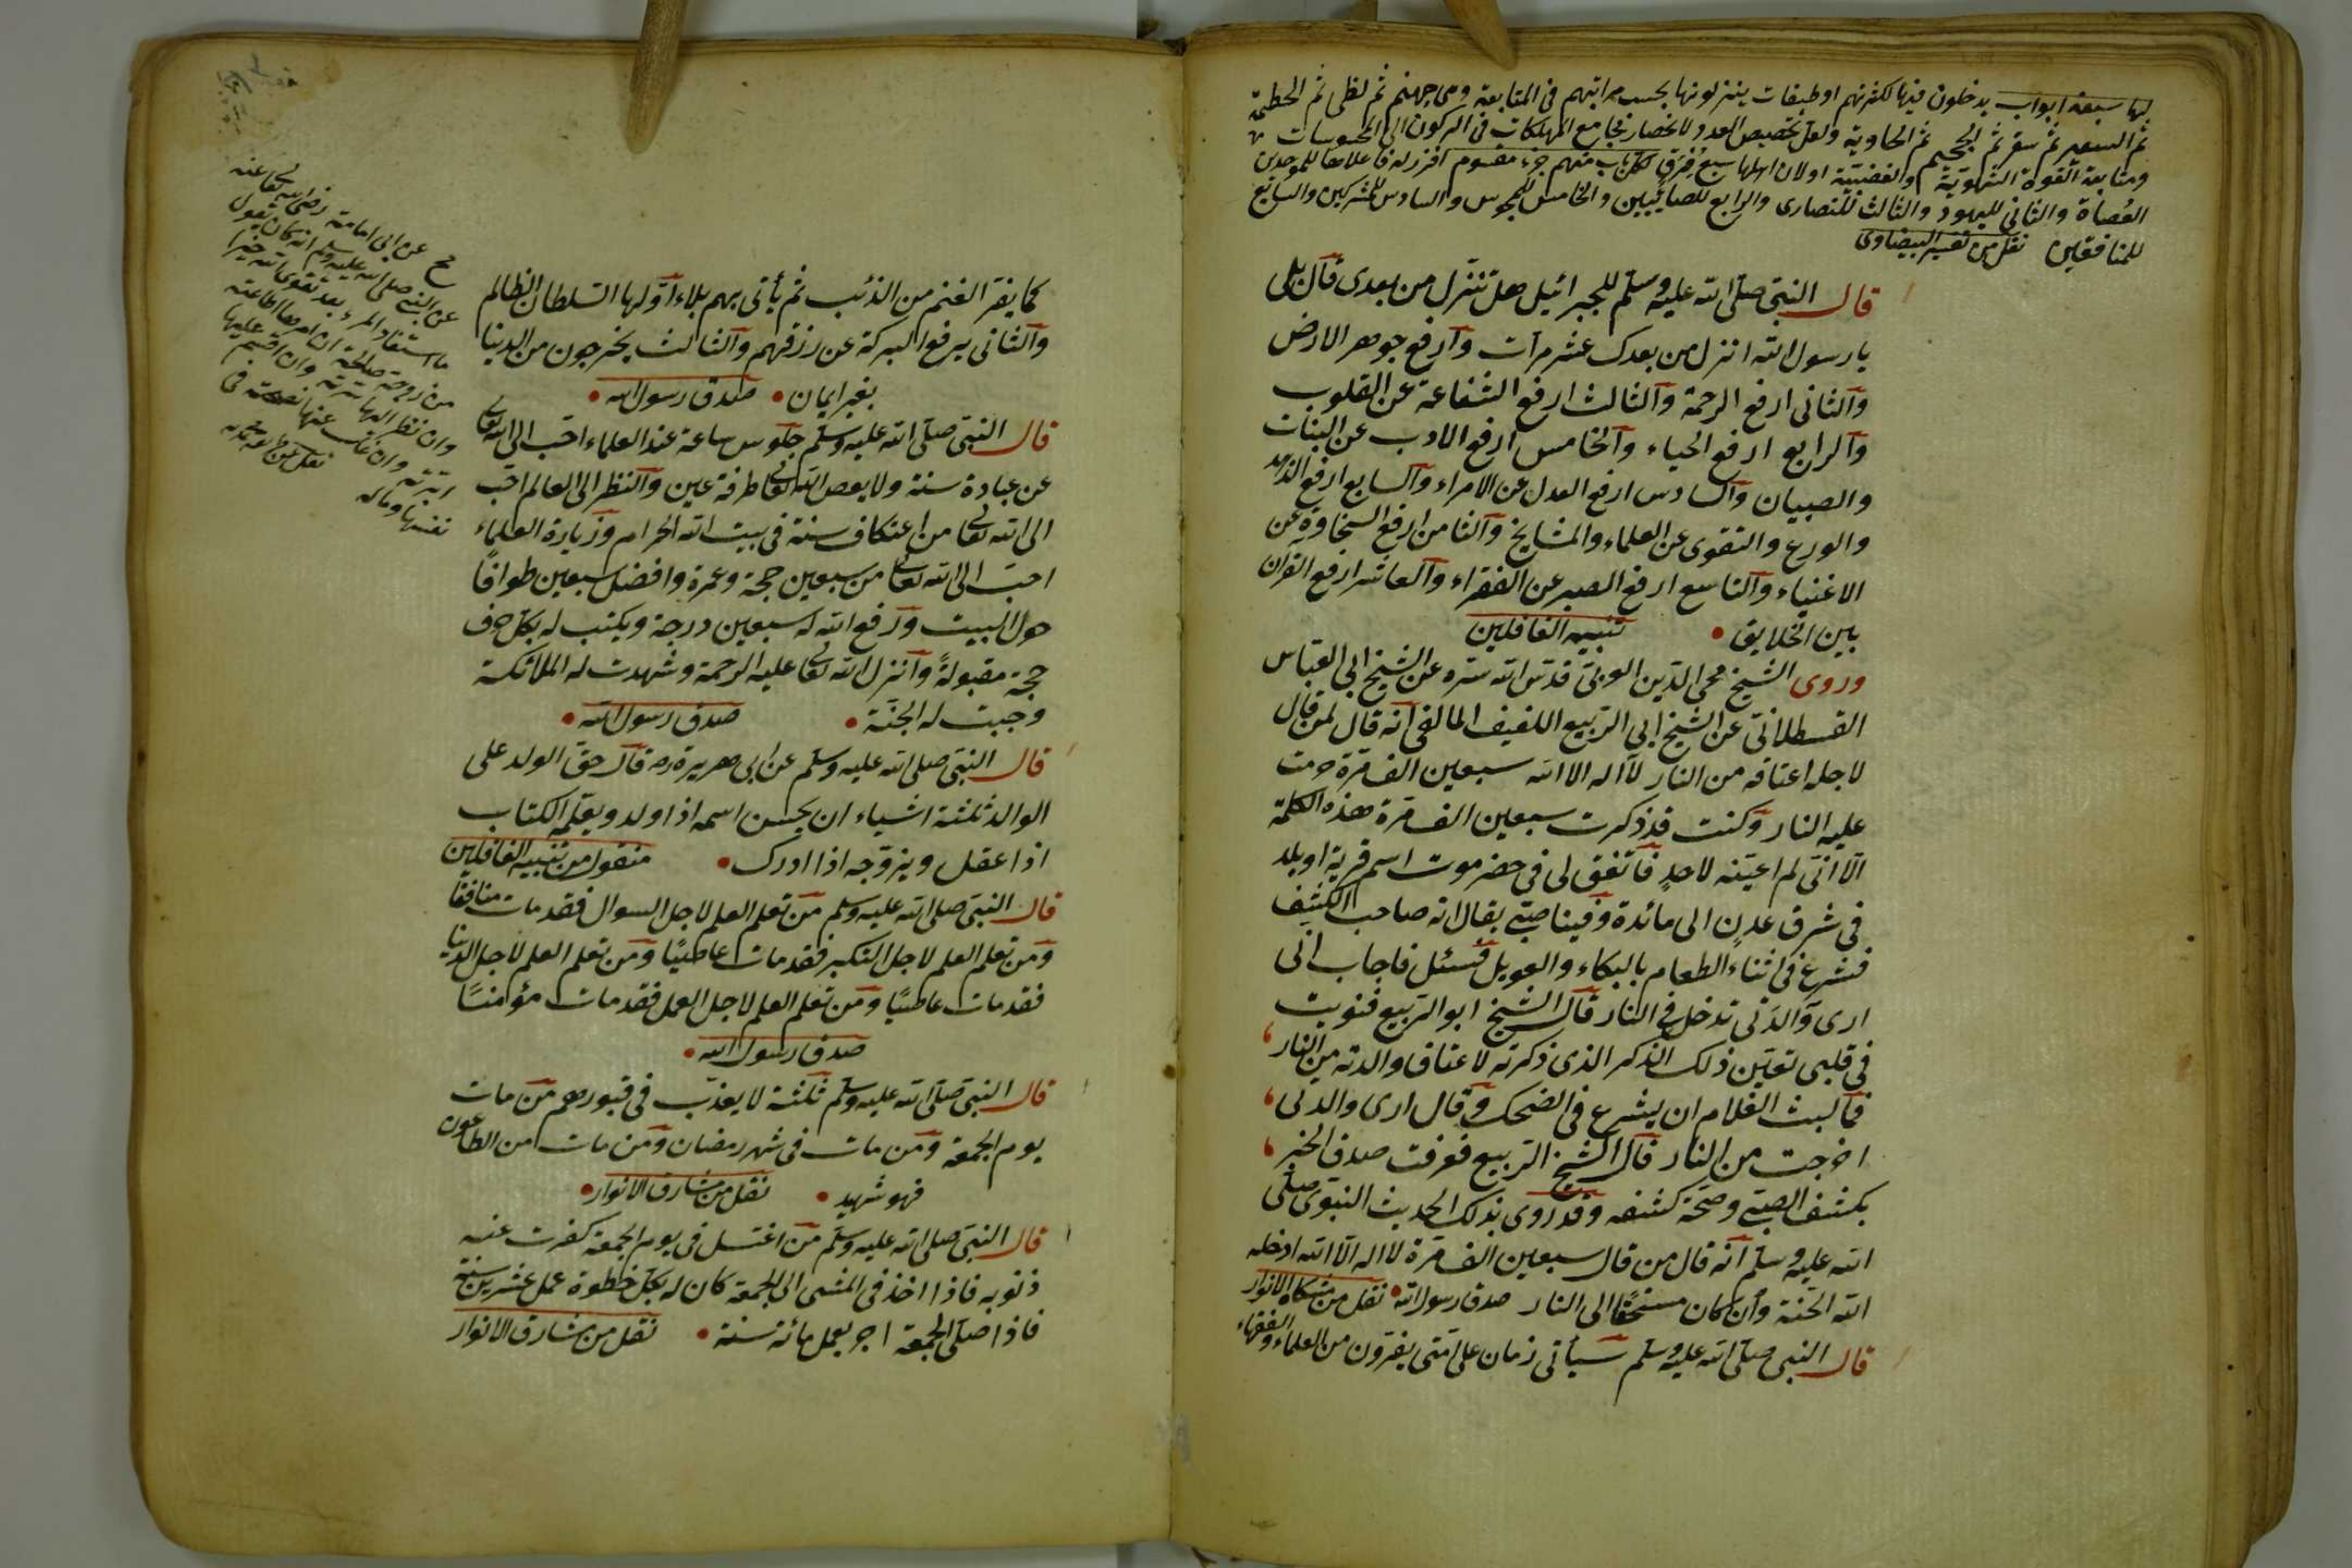 لها سبعة ابواب يدخلون فيها لكثرتهم او طبقات ينزلونها بحسب مراتبهم في المتابعة وهي جهنم ثم لظى ثم الحطمة
ثم السعير ثم سقر ثم الجحيم ثم الهاوية ولعل تخصيص العدد لانحصار مجامع المهلكات في الركون الى المحسوسات
ومتابعة القوة الشهوية والغضبية او لان اهلها سبع فرق لكل باب منهم جزء مقسوم افرز له فاعلاها للموحدين
العُصاة والثاني لليهود والثالث للنصارى والرابع للصابيين والخامس للمجوس والسادس للمشركين والسابع
للمنافقين نقل من تفسير البيضاوى
قال النبى صلى الله عليه وسلم للجبرائيل هل تنزل من بعدى قال بلى
يا رسول الله انزل من بعدك عشر مرات وارفع جوهر الارض
والثانى ارفع الرحمة والثالث ارفع الشفاعة عن القلوب
والرابع ارفع الحياء والخامس ارفع الادب عن البنات
والصبيان والسادس ارفع العدل عن الامراء والسابع ارفع الزهد
والورع والتقوى عن العلماء والمشايخ والثامن ارفع السخاوة عن
الاغنياء والتاسع ارفع الصبر عن الفقراء والعاشر ارفع القرآن
بين الخلايق • تنبيه الغافلين
وروى الشيخ محى الدين العربى قدس الله سره عن الشيخ ابى العباس
القسطلانى عن الشيخ ابى الربيع اللفيف المالقى انه قال لمن قال
لاجل اعتاقه من النار لا اله الا الله سبعين الف مرة حرمت
عليه النار وكنت قد ذكرت سبعين الف مرة هذه الكلمة
الا انى لم اعينه لاحد فاتفق لى فى حضرموت اسم قرية او بلد
في شرق عدن الى مائدة وفينا صبى يقال انه صاحب الكشف
فشرع فى اثناء الطعام بالبكاء والعويل فسئل فاجاب انى
ارى والدتى تدخل فى النار قال الشيخ ابو الربيع فنويت
فى قلبى تعيين ذلك الذكر الذى ذكرته لاعتاق والدته من النار
فما لبث الغلام ان يشرع فى الضحك وقال ارى والدتى
اخرجت من النار قال الشيخ الربيع فعرفت صدق الخبر
بكشف الصبى وصحة كشفه وقد روى بذلك الحديث النبوى صلى
الله عليه وسلم انه قال من قال سبعين الف مرة لا اله الا الله ادخله
الله الجنة وان كان مستحقا الى النار صدق رسول الله • نقل من مشكاة الانوار
قال النبى صلى الله عليه وسلم سيأتى زمان على امتى يفرون من العلماء والفقهاء
كما يفر الغنم من الذئب ثم يأتى بهم بلاء اولها السلطان الظالم
والثانى يرفع البركة عن رزقهم والثالث يخرجون من الدنيا
بغير ايمان • صدق رسول الله •
قال النبى صلى الله عليه وسلم جلوس ساعة عند العلماء احب الى الله تعالى
عن عبادة سنة ولا يعص الله تعالى طرفة عين والنظر الى العالم احب
الى الله تعالى من اعتكاف سنة فى بيت الله الحرام وزيارة العلماء
احب الى الله تعالى من سبعين حجة وعمرة وافضل سبعين طوافاً
حول البيت ورفع الله له سبعين درجة ويكتب له بكل حرف
حجة مقبولةً وانزل الله تعالى عليه الرحمة وشهدت له الملائكة
وجبت له الجنة • صدق رسول الله •
قال النبى صلى الله عليه وسلم عن ابى هريرة رضه قال حق الولد على
الوالد ثلثة اشياء ان يحسن اسمه اذا ولد ويعلمه الكتاب
اذا عقل ويزوجه اذا ادرك • منقول من تنبيه الغافلين
قال النبى صلى الله عليه وسلم من تعلم العلم لاجل السوال فقد مات منافقا
ومن تعلم العلم لاجل التكبر فقد مات عاصيًا ومن تعلم العلم لاجل الدنيا
فقد مات عاصيًا ومن تعلم العلم لاجل العمل فقد مات مؤمنًا
صدق رسول الله •
قال النبى صلى الله عليه وسلم ثلثة لا يعذب فى قبورهم من مات
يوم الجمعة ومن مات فى شهر رمضان ومن مات من الطاعون
فهو شهيد • نقل من مشارق الانوار •
قال النبى صلى الله عليه وسلم من اغتسل فى يوم الجمعة كفرت عنه
ذنوبه فاذا اخذ فى المشى الى الجمعة كان له بكل خطوة عمل عشرين سنة
فاذا صلى الجمعة اجر بعمل مائة سنة • نقل من مشارق الانوار
عن ابى امامة رضى الله تعالى عنه
عن النبى صلى الله عليه وسلم انه كان يقول
ما استفاد المرء بعد تقوى الله خيرا
من زوجة صالحة ان امرها اطاعته
وان نظر اليها سرته وان اقسم عليها
ابرته وان غاب عنها نصحته فى
نفسها وماله